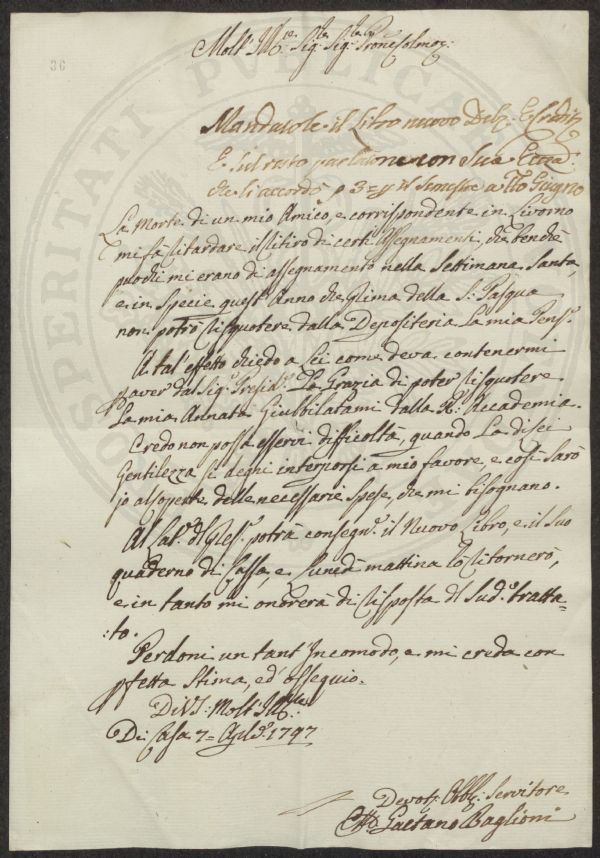 36
Molt' Ill:re Sig:re Sig:re Prone Colmo:
Mandatole il Libro nuovo Deb:, e Credit:
E sul resto parlatone con Sua Ecca:
che si accordò p 3= il Semestre a tto Giugno
La Morte di un mio Amico, e corrispondente in Livorno
mi fà ritardare il ritiro di certi Assegnamenti, che benchè
puochi mi erano di assegnamento nella Settimana Santa,
e in specie quest'Anno che prima della S: Pasqua
non potrò risquotere dalla Depositeria la mia Pens:e
A tal'effetto chiedo a Lei come deva contenermi
p aver dal Sig:re Presid:te la Grazia di poter risquotere
la mia Annata Giubbilatami dalla R: Accademia.
Credo non possa esservi difficoltà, quando La di Lei
Gentilezza si degni interporsi a mio favore, e così sarò
io al coperto delle necessarie spese, che mi bisognano.
Al Lat:re potrà consegn:e il Nuovo Libro, e il Suo
quaderno di Cassa, e Lunedì mattina lo ritornerò,
e in tanto mi onorerà di risposta Sud:o tratta-
:to.
Perdoni un tant'Incomodo, e mi creda con
pfetta Stima, ed'ossequio.
Di VS: Molt'Ill:re
Di Casa 7= Aple 1797
Devot: Obb: Servitore
Gaetano Baglioni
PROSPERITATI PUBLICAE